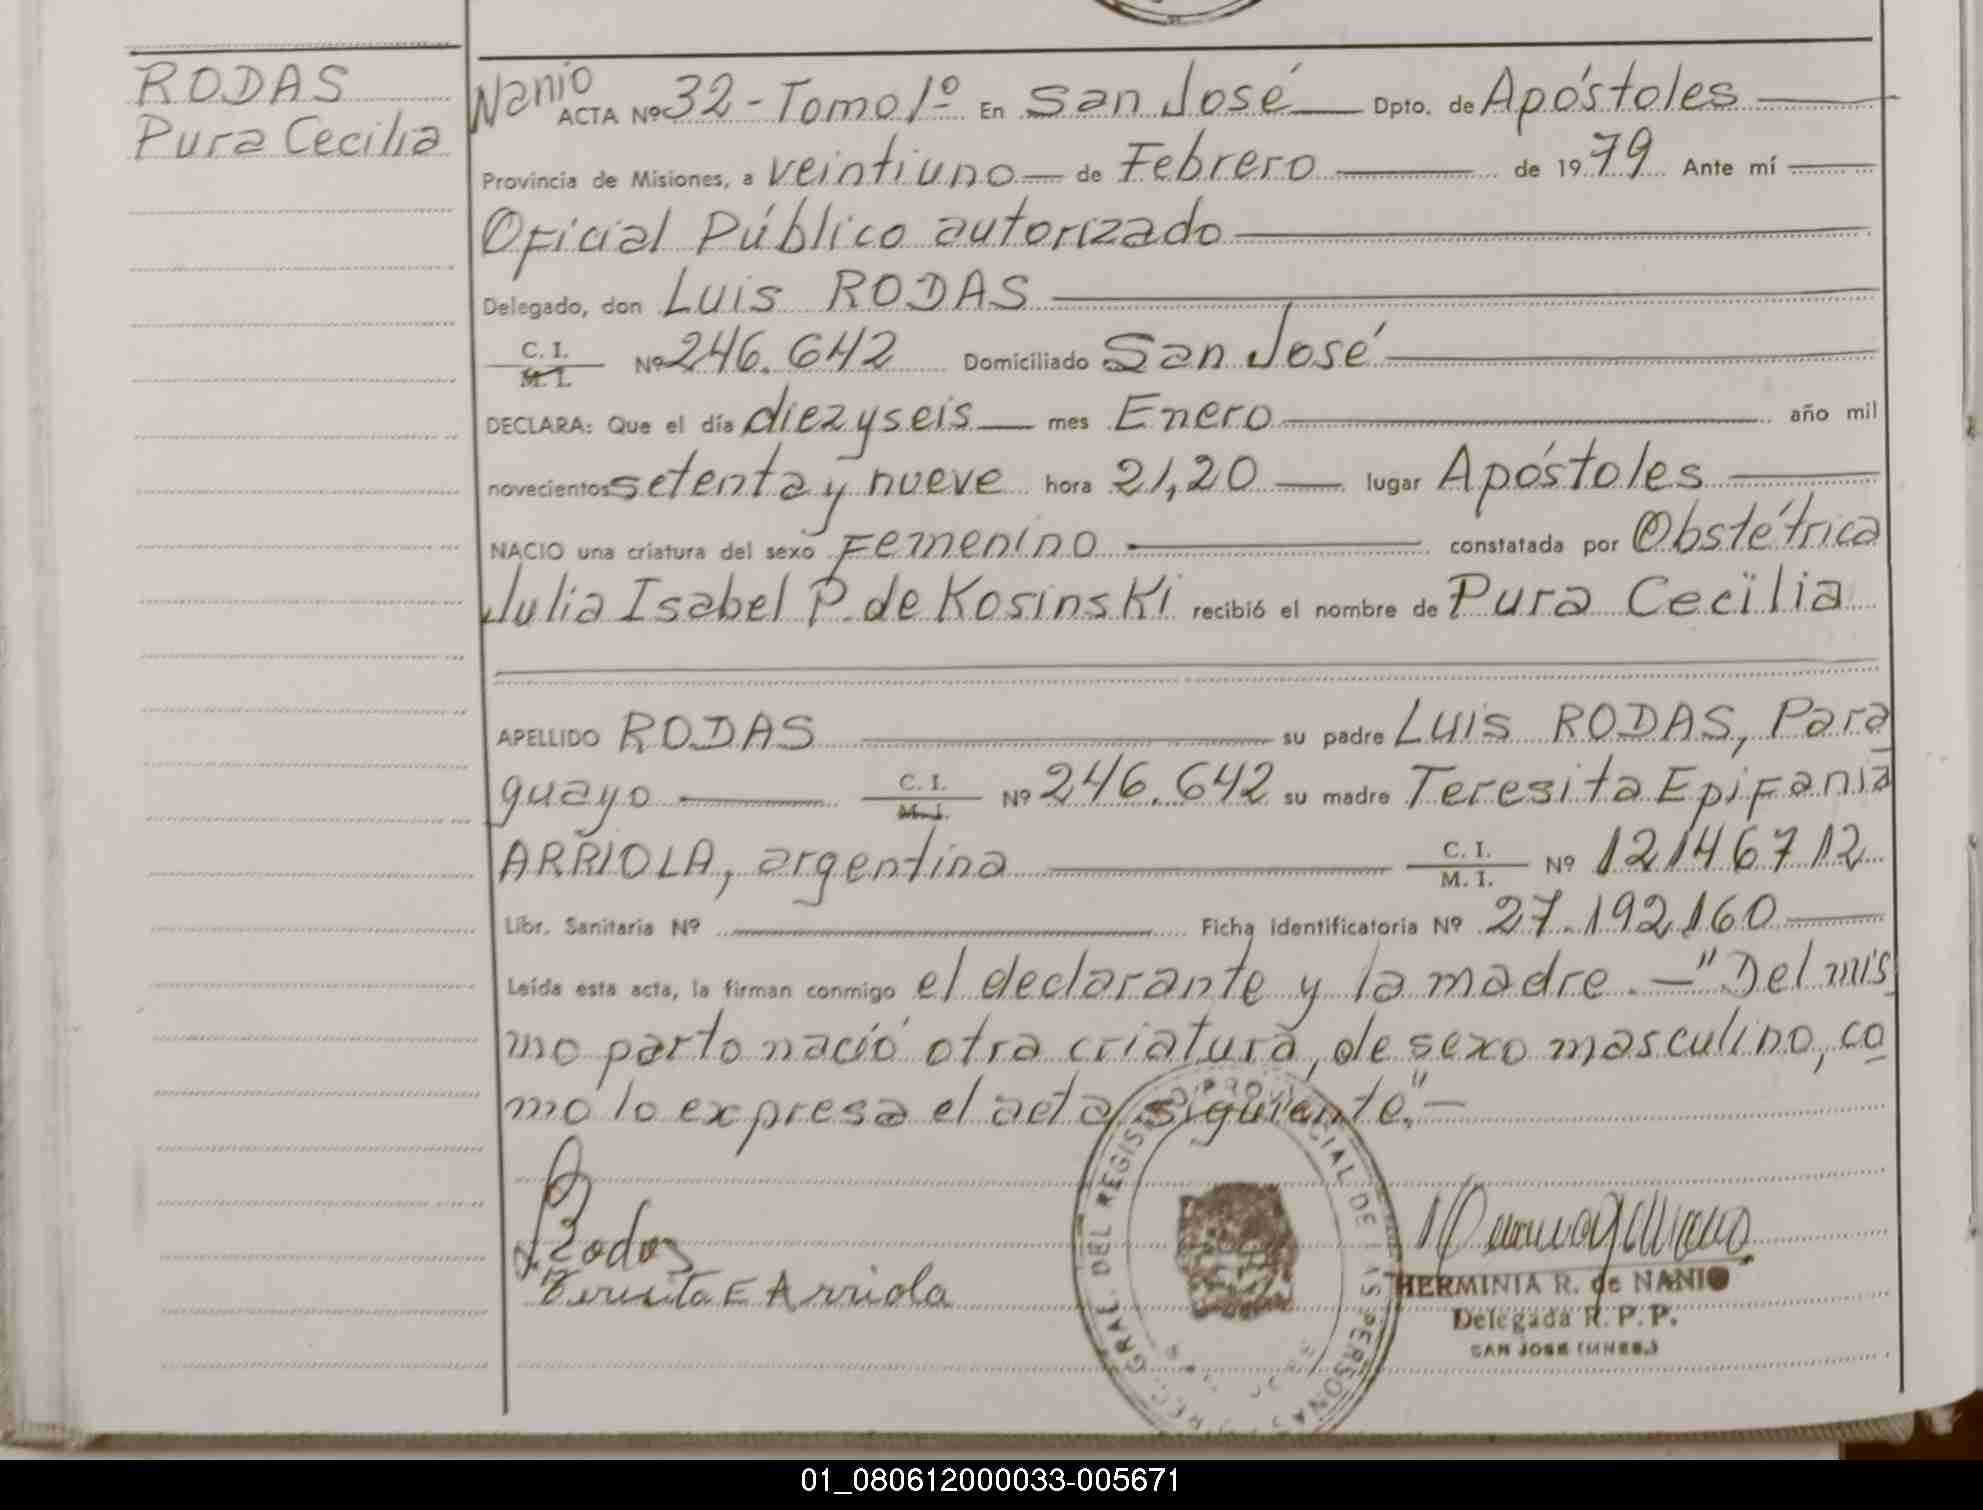 RODAS
Pura Cecilia
Nanio
ACTA Nº 32 - Tomo 1º En San José Dpto. de Apóstoles
Provincia de Misiones, a veintiuno de Febrero de 1979 Ante mí
Oficial Público autorizado
Delegado, don Luis RODAS
C. I.
M. I.
Nº 246.642 Domiciliado San José
DECLARA: Que el día diez y seis mes Enero año mil
novecientos setenta y nueve hora 21,20 lugar Apóstoles
NACIO una criatura del sexo Femenino constatada por Obstétrica
Julia Isabel P. de Kosinski recibió el nombre de Pura Cecilia
APELLIDO RODAS su padre Luis RODAS, Para
guayo C. I. M. I. Nº 246.642 su madre Teresita Epifania
ARRIOLA, argentina C. I. M. I. Nº 12146712
Libr. Sanitaria Nº Ficha identificatoria Nº 27.192.160
Leída esta acta, la firman conmigo el declarante y la madre. - "Del mis
mo parto nació otra criatura, de sexo masculino, co
mo lo expresa el acta siguiente." -
Rodas
Teresita E Arriola
GRAL. DEL REGISTRO PROVINCIAL DE LAS PERSONAS
HERMINIA R. de NANIO
Delegada R. P. P.
SAN JOSE (MNES.)
01_080612000033-005671